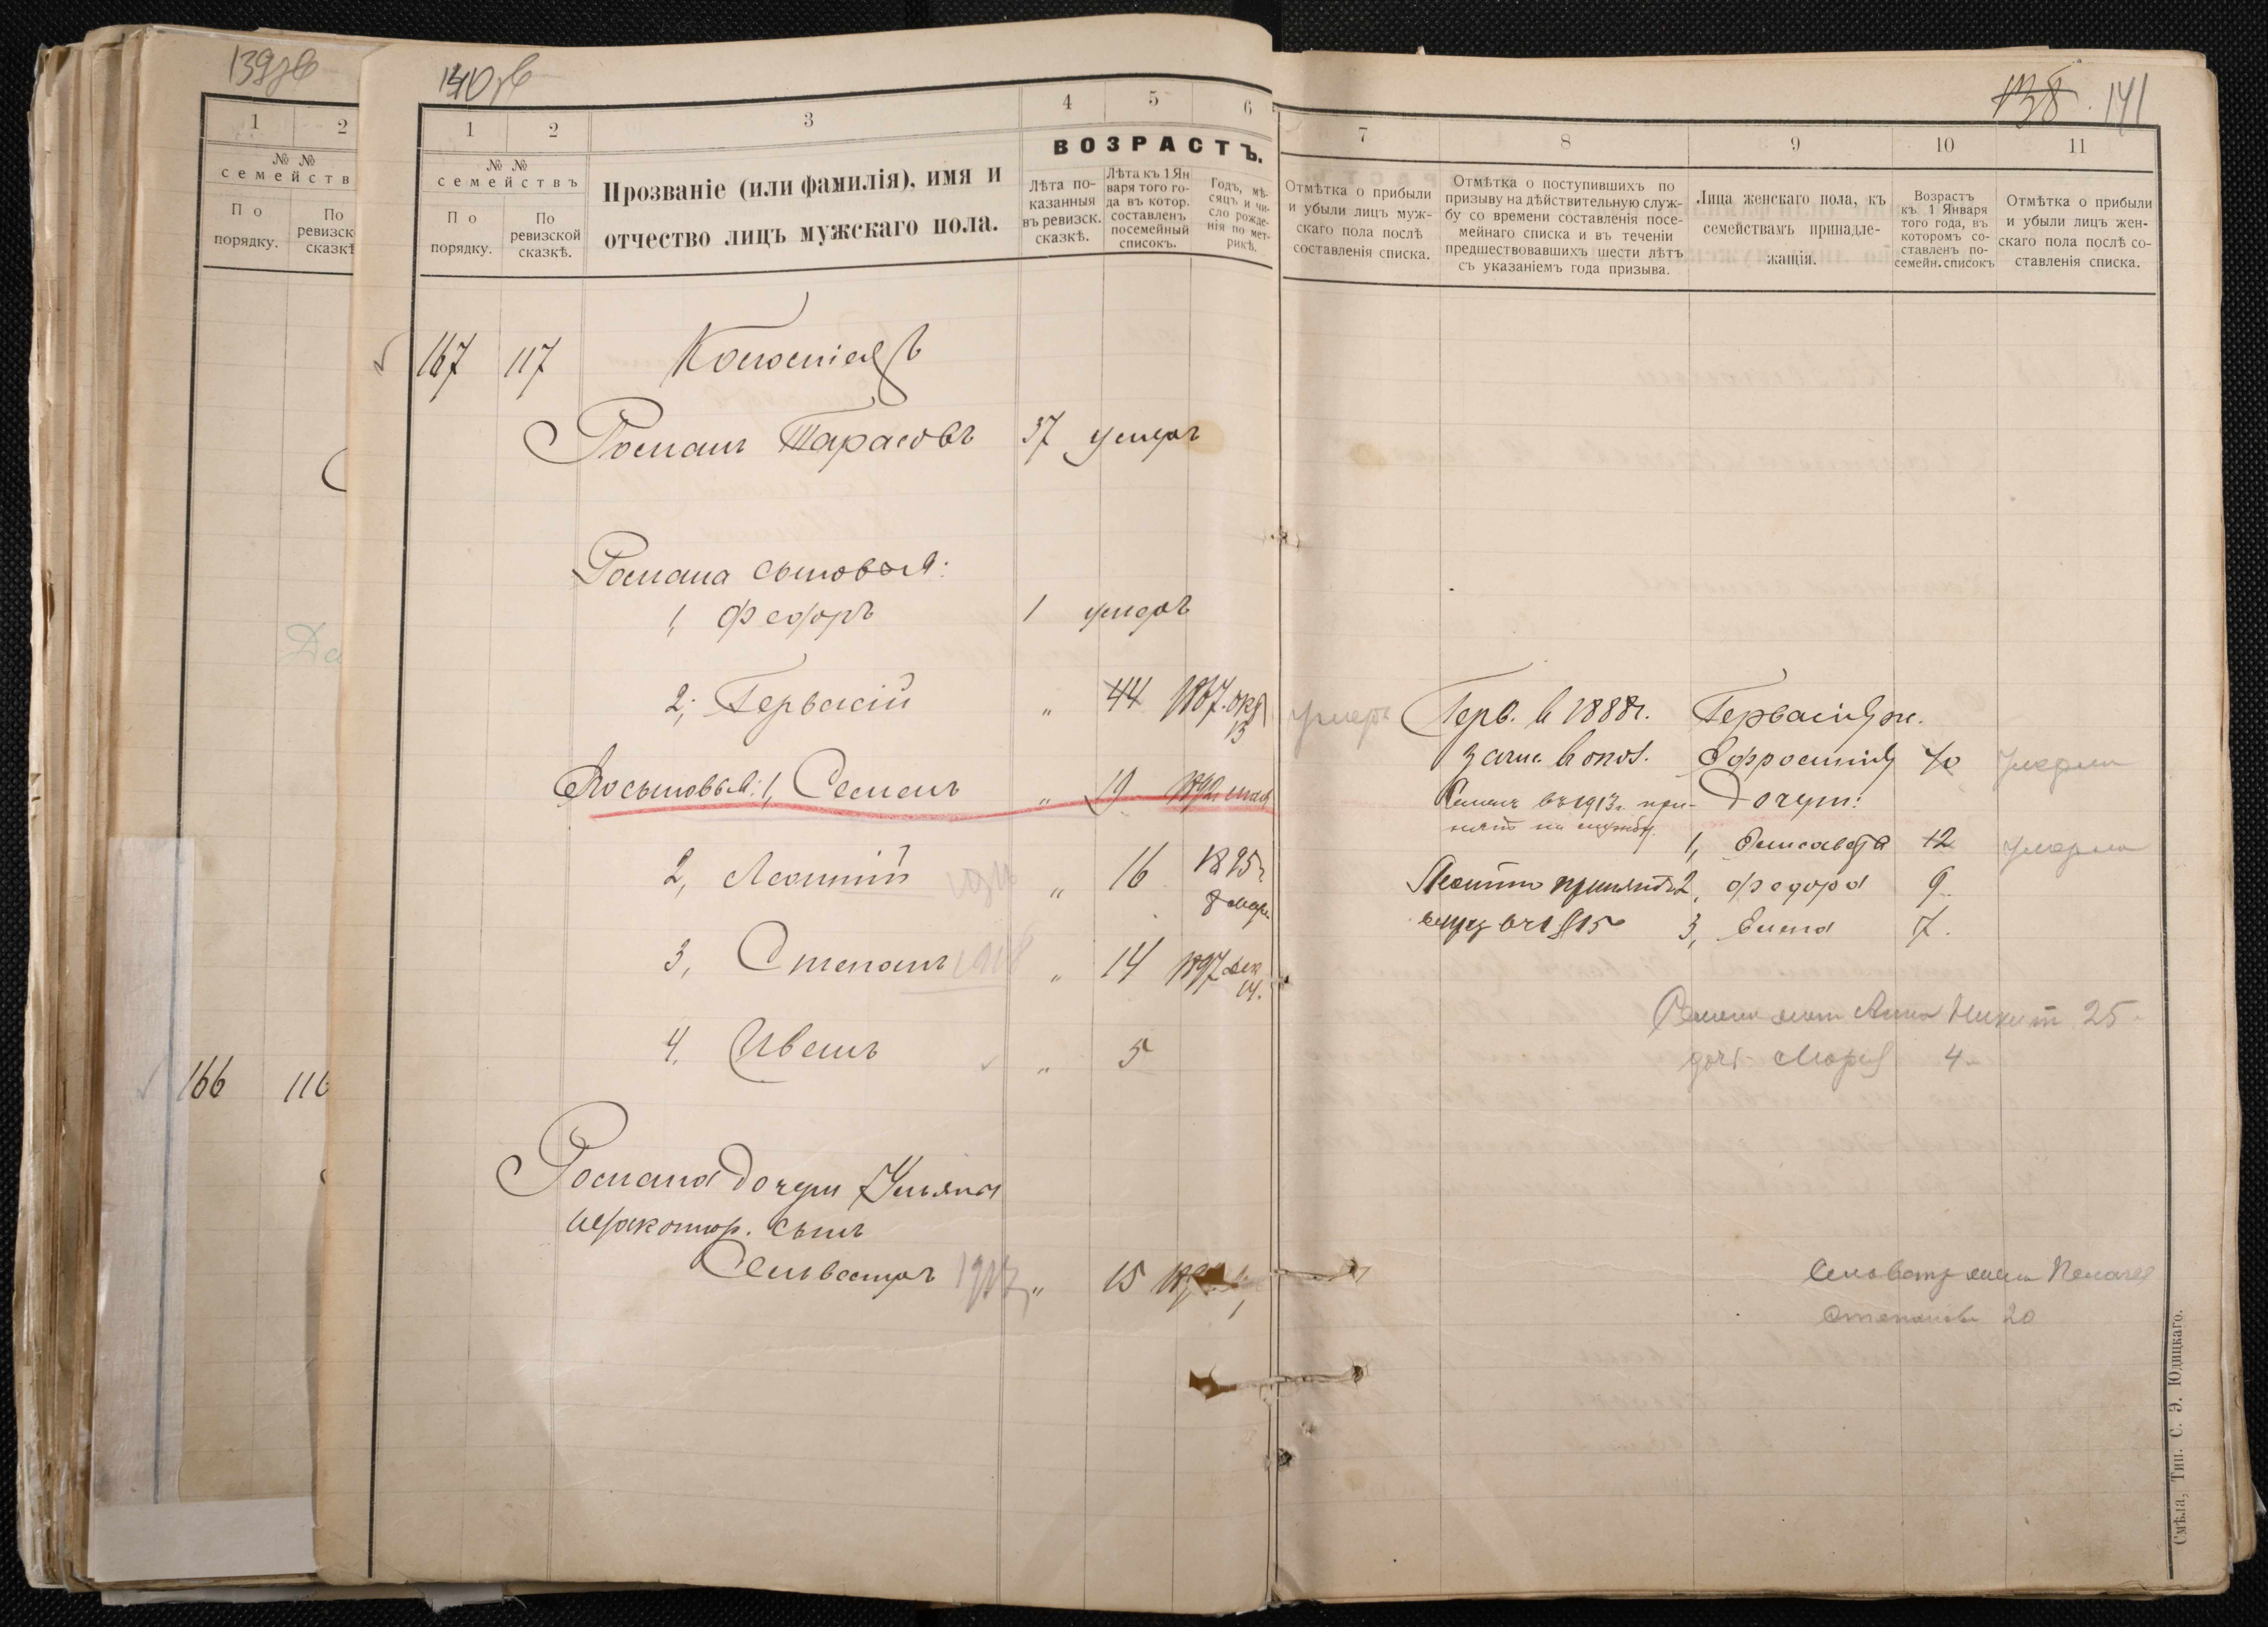 139зв
1
2
№ №
семейств
По
порядку.
По
ревизск
сказкѣ
166
116
140зв
1
2
3
4
5
6
№ №
семействъ
По
порядку.
По
ревизской
сказкѣ.
Прозваніе (или фамилія), имя и
отчество лицъ мужскаго пола.
ВОЗРАСТЪ.
Лѣта по-
казанныя
въ ревизск.
сказкѣ.
Лѣта къ 1 Ян
варя того го-
да въ котор.
составленъ
посемейный
списокъ.
Годъ, мѣ-
сяцъ и чи-
сло рожде-
нія по мет-
рикѣ.
167 117
Романъ Тарасовъ 37 умеръ
Романа сыновья:
1, Федоръ 1 умеръ
2, Гервасій " 44 1867. окт 13
Его сыновья: 1, Семенъ " 19 1892 мая
2, Леонтій " 16 1895 г 8 мар.
3, Степанъ 1918 " 14 1897 дек 14.
4, Иванъ " 5
Романа дочери Ульяны
незаконнор. сынъ
Сильвестръ 1917 " 15
138. 141
7
8
9
10
11
Отмѣтка о прибыли
и убыли лицъ муж-
скаго пола послѣ
составленія списка.
Отмѣтка о поступившихъ по
призыву на дѣйствительную служ-
бу со времени составленія посе-
мейнаго списка и въ теченіи
предшествовавшихъ шести лѣтъ
съ указаніемъ года призыва.
Лица женскаго пола, къ
семействамъ принадле-
жащія.
Возрастъ
къ 1 Января
того года, въ
которомъ со-
ставленъ по-
семейн. списокъ
Отмѣтка о прибыли
и убыли лицъ жен-
скаго пола послѣ со-
ставленія списка.
умеръ Герв. в 1888 г. Гервасія ж.
зачис. в опол. Ефросинія 40 умерла
Семенъ въ 1913 г. при- Дочери:
нятъ на службу.
1, Елисавета 12 умерла
Леонтій принятъ 2, Федора 9
въ 1915 3, Елена 7.
Семена жена Анна Никит 25
дочь Марія 4
Сильвестр жена Пелагея
Степанова 20
Смѣла, Тип. С. Э. Юдицкаго.